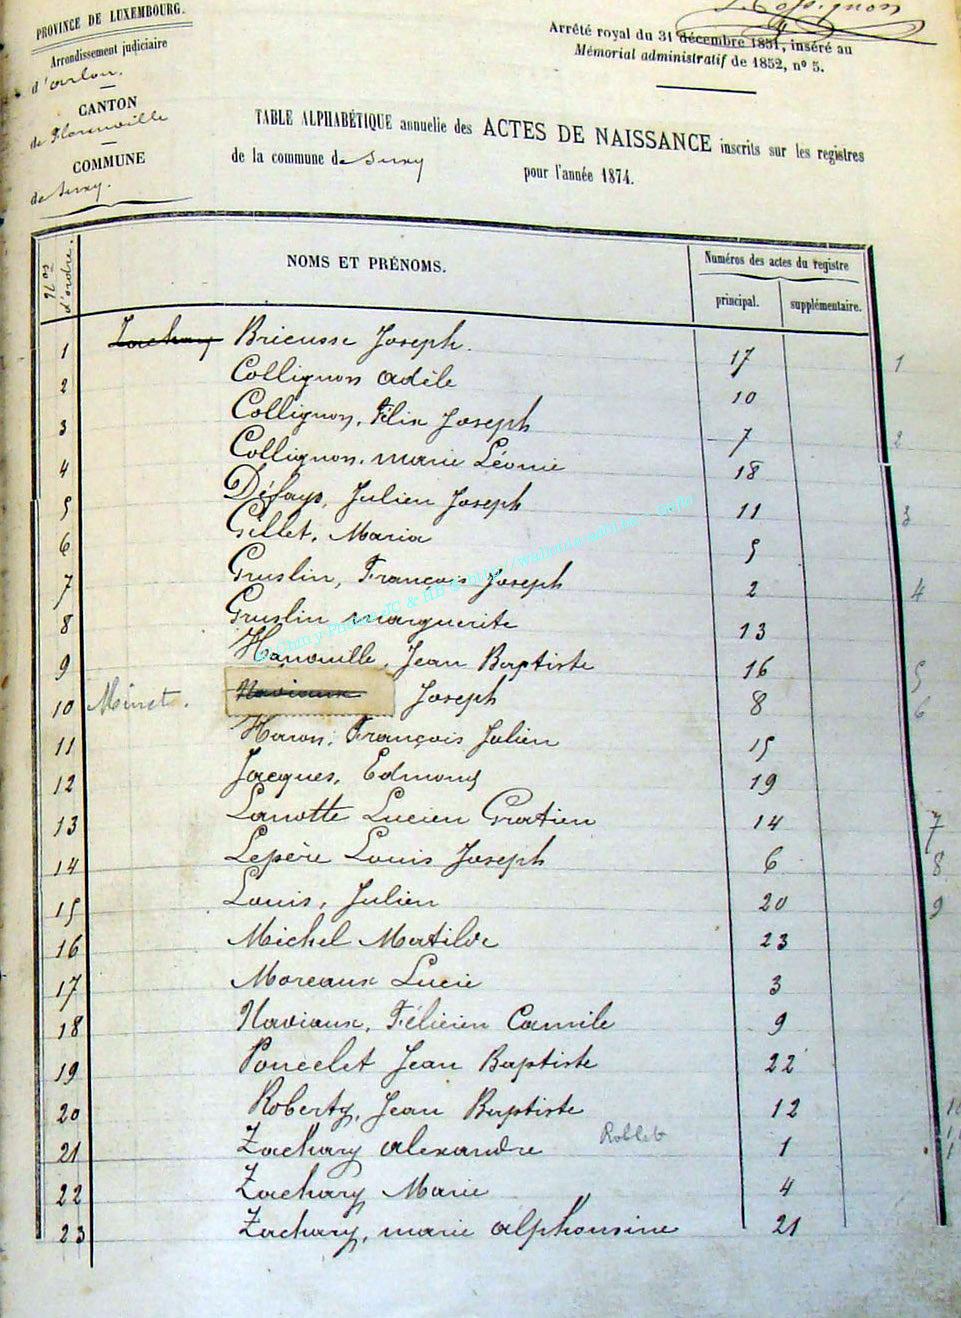 PROVINCE DE LUXEMBOURG.
Arrondissement judiciaire
d'arlon.
CANTON
de Florenville
COMMUNE
de Suxy.
Arrêté royal du 31 décembre 1851, inséré au
Mémorial administratif de 1852, nº 5.
TABLE ALPHABÉTIQUE annuelle des ACTES DE NAISSANCE inscrits sur les registres
de la commune de Suxy pour l'année 1874.
Nos d'ordre. NOMS ET PRÉNOMS. Numéros des actes du registre
principal. supplémentaire.
1 Zachary Bricusse Joseph. 17 1
2 Collignon adèle 10
3 Collignon, Félix Joseph 7 2
4 Collignon, marie Léonie 18
5 Défays, Julien Joseph 11 3
6 Gillet, Maria 5
7 Gruslin, François Joseph 2 4
8 Gruslin marguerite 13
9 Hanouille, Jean Baptiste 16 5
10 Minet. Naviaux Joseph 8 6
11 Haron, François Julien 15
12 Jacques, Edmond 19
13 Lanotte Lucien Gratien 14 7
14 Lepère Louis Joseph 6 8
15 Louis, Julien 20 9
16 Michel Matilde 23
17 Moreaux Lucie 3
18 Naviaux, Félicien Camile 9
19 Poncelet Jean Baptiste 22
20 Roberty, Jean Baptiste 12
21 Zachary alexandre 1
22 Zachary Marie 4
23 Zachary, marie alphonsine 21